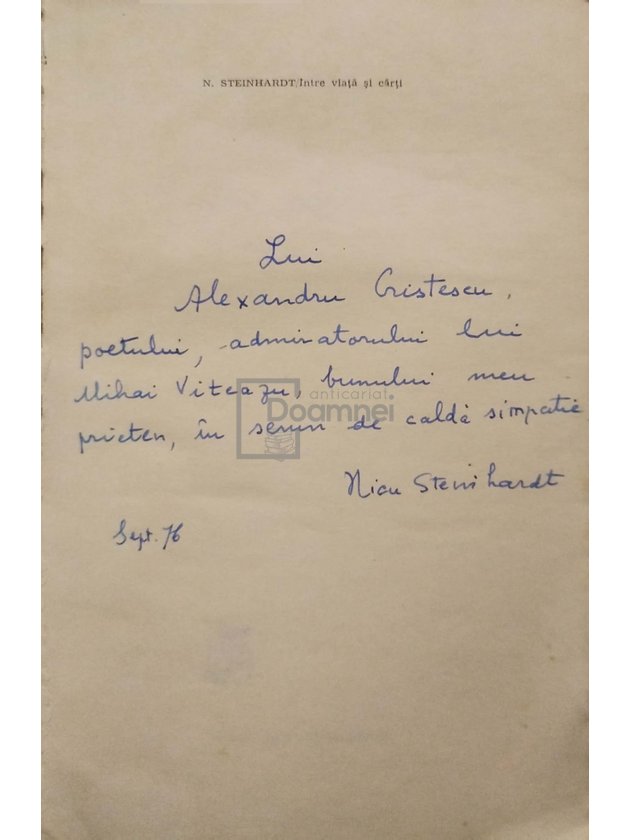 N. STEINHARDT/Între viață și cărți
Lui
Alexandru Cristescu,
poetului, admiratorului lui
Mihai Viteazu, bunului meu
anticariat
Doamnei
prieten, în semn de caldă simpatie
Nicu Steinhardt
Sept. 76